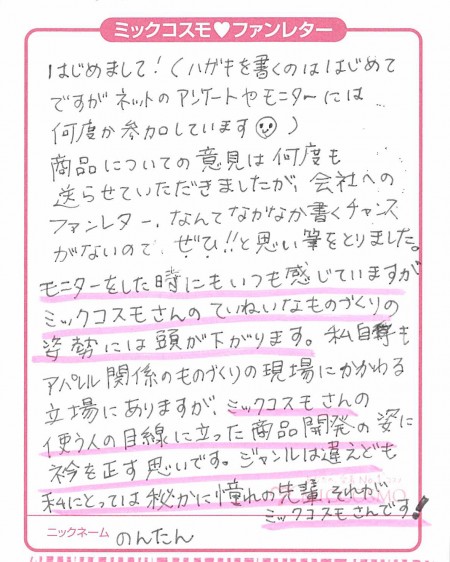 ミックコスモ♥ファンレター
はじめまして！（ハガキを書くのははじめて
ですがネットのアンケートやモニターには
何度か参加しています）
商品についての意見は何度も
送らせていただきましたが、会社への
ファンレター、なんてなかなか書くチャンス
がないので、ぜひ!!と思い筆をとりました。
モニターをした時にもいつも感じていますが
ミックコスモさんのていねいなものづくりの
姿勢には頭が下がります。私自身も
アパレル関係のものづくりの現場にかかわる
立場にありますが、ミックコスモさんの
使う人の目線に立った商品開発の姿に
衿を正す思いです。ジャンルは違えども
私にとっては秘かに憧れの先輩、それが
ミックコスモさんです！
ニックネーム のんたん